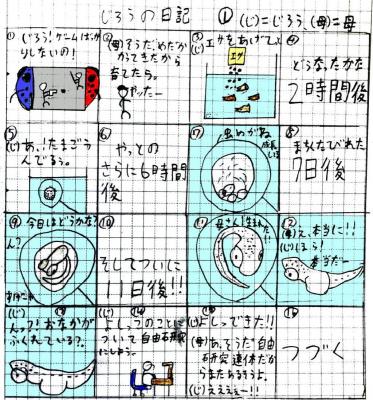 じろうの日記 ① (じ)=じろう、(母)=母
① じろう! ゲームばっかりしないの!
② (母)そうだ、めだかがってきたから育てたら。
やったー
③ (じ)エサをあげて
エサ
④ どうなったかな
2時間後
⑤ (じ)あ、! たまごうんでるぅ。
⑥ やっとの
さらに6時間後
⑦ 虫めがね
⑧ まちくたびれた
7日後
⑨ 今日はどうかな?
ん?
⑩ そしてついに
11日後!!
⑪ 母さん! 生まれた!!
⑫ (母)え、本当に!!
(じ)ほら!
本当だー
⑬ (じ)んっ?! おなかがふくれている?
⑭ (じ)よしっこのことについて自由研究にしよう。
⑮ (じ)よしっできた!!
(母)あ、そうだ自由研究連休だからまたあるそうよ。
(じ)えええぇー!!
⑯ つづく